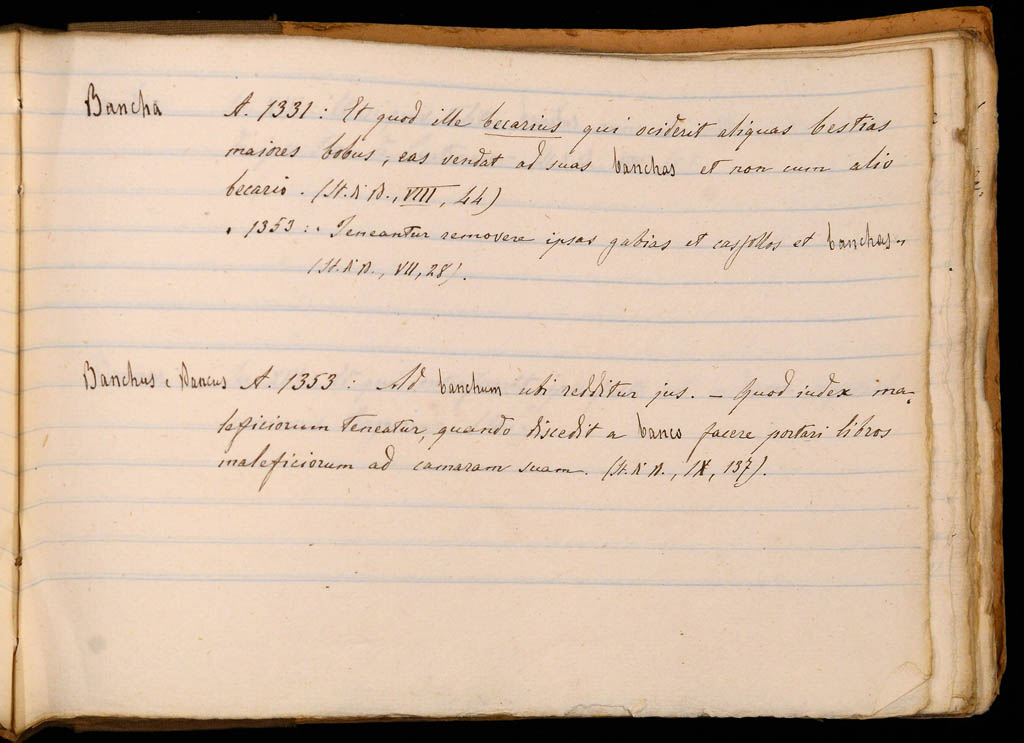 Bancha A. 1331 : Et quod ille becarius qui occiderit aliquas bestias
maiores bobus, eas vendat ad suas banchas et non cum alio
becario. (St. A. B., VIII, 44)
" 1353 : Teneantur removere ipsas gabias et banchas
(St. A. B., VII, 28).
Banchus e Bancus A. 1353 : Ad banchum ubi redditur jus. — Quod iudex ma-
leficiorum teneatur, quando discedit a banco facere portari libros
maleficiorum ad camaram suam. (St. A. B., IX, 137).